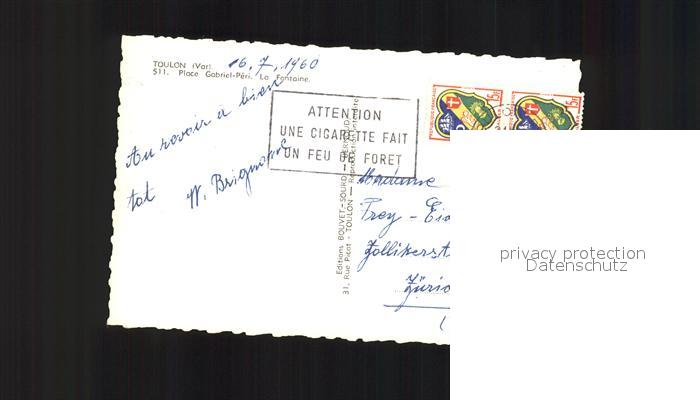 TOULON (Var).
511. Place Gabriel-Péri. La Fontaine.
16.7.1960
Au revoir à bien
tot W. Brignone
ATTENTION
UNE CIGARETTE FAIT
UN FEU DE FORET
Editions BOUVET-SOURD
31, Rue Picot - TOULON
Reproduction interdite
15F
15F
Madame
Frey - Ei
Zollikerst
Züri
privacy protection
Datenschutz